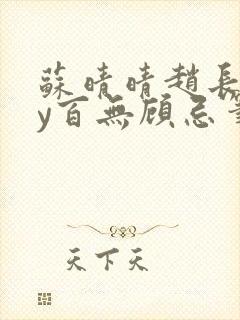 蘇晴晴趙長
y百無顧忌
天下天